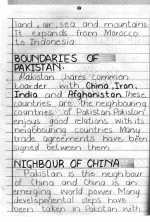 land, air, sea and mountains.
It expands from Morocco
to Indonesia.
BOUNDARIES OF
PAKISTAN:
Pakistan shares common
boarder with China, Iran,
India and Afghanistan. These
countries are the neighbouring
countries of Pakistan. Pakistan
enjoys good relations with its
neighbouring countries. Many
trade agreements have been
signed between them.
NIGHBOUR OF CHINA
Pakistan is the neighbour
of China and China is an
emerging world power. Many
developmental steps have
been taken in Pakistan with